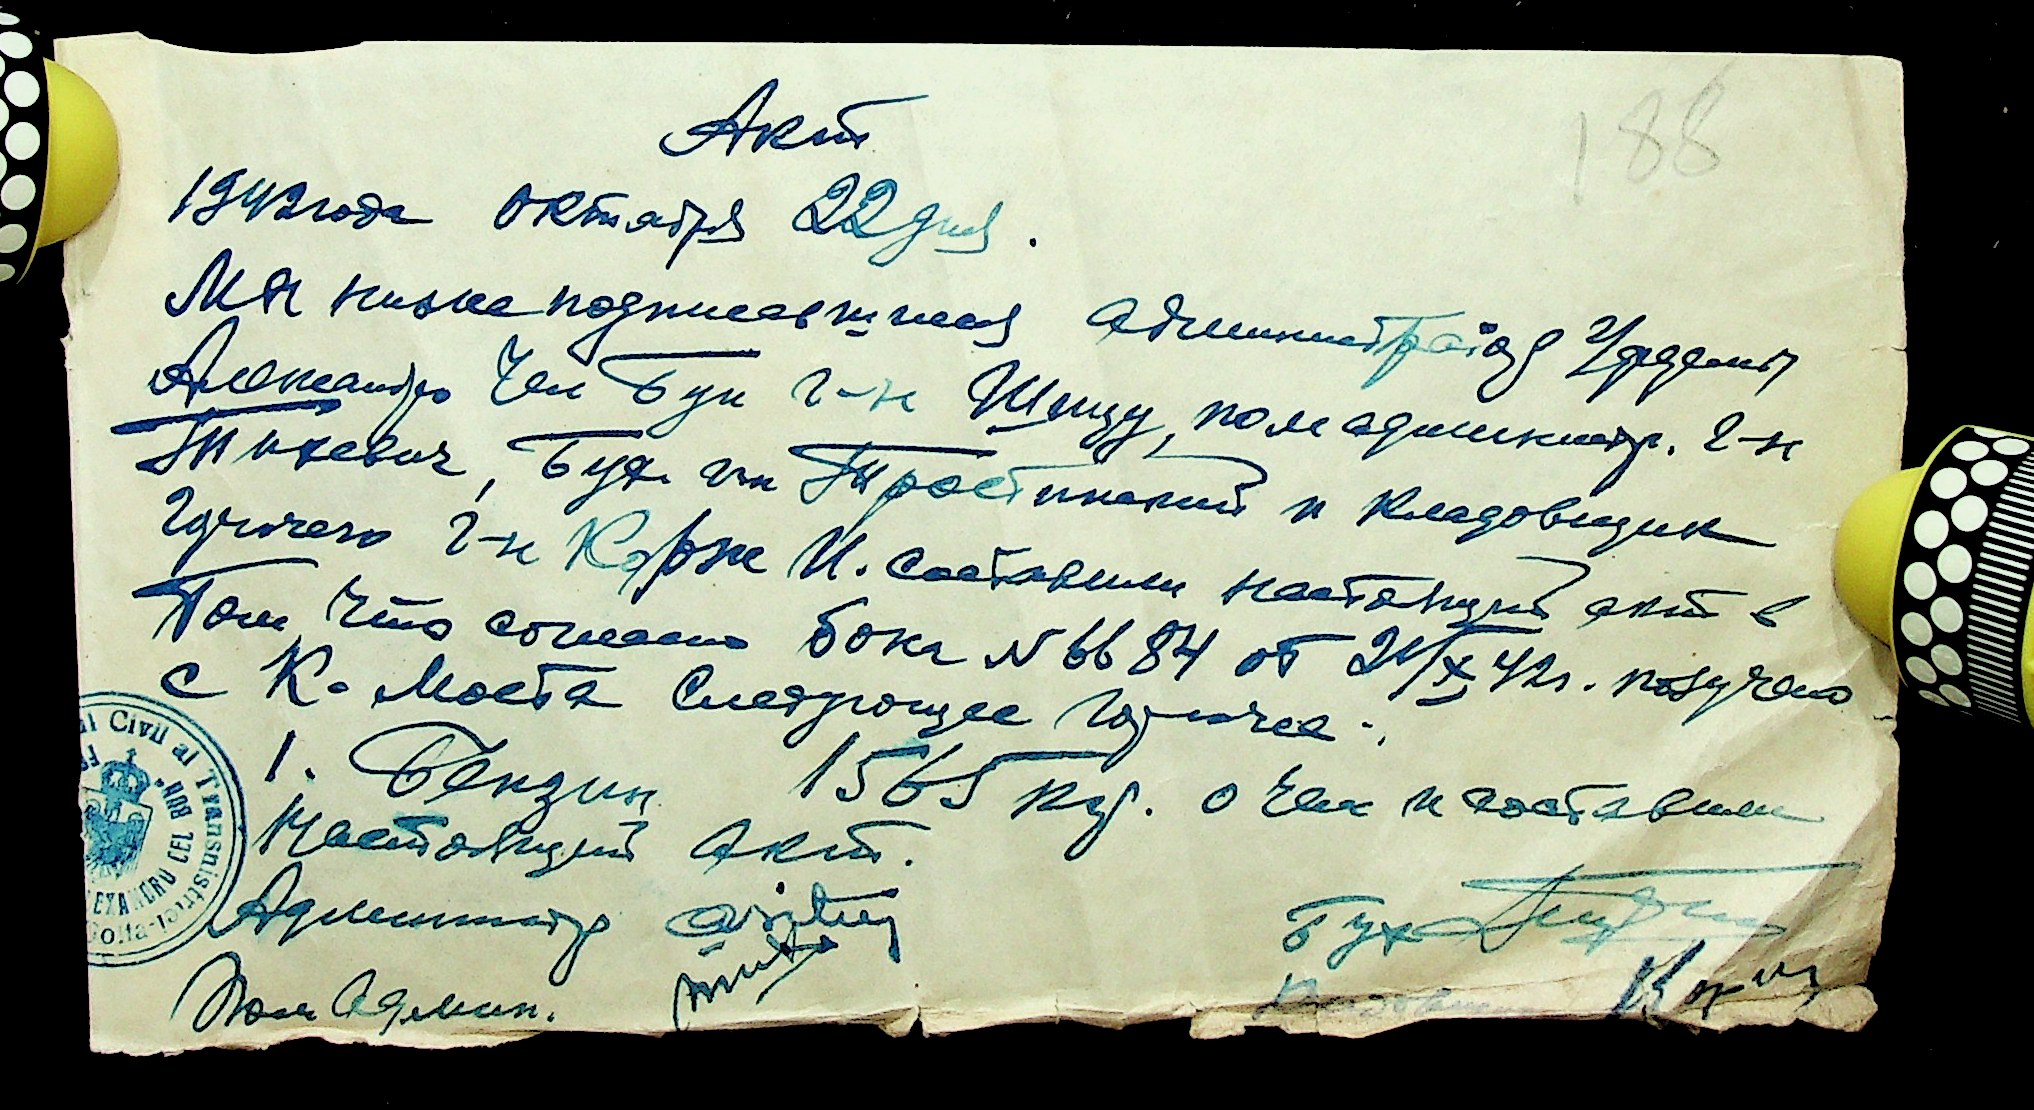 188
Акт
1942 года октября 22 дня.
Мы ниже подписавшиеся администратор
Александр Чел Бун г-н Шицу, пом админстр. г-н
Тихевич, Бух. г-н Тростинский и кладовщик
горючего г-н Корж И. составили настоящий акт в
том, что согласно бона N 6684 от /X 42 г. получено
с К. Моста следующее горючее:
1. Бензин 1565 кгр. о чем и составили
настоящий акт.
Администр
Бух
Пом Админ.
Кладовщик Корж
al Civil al Transnistriei
EXANDRU CEL BUN"
Golta